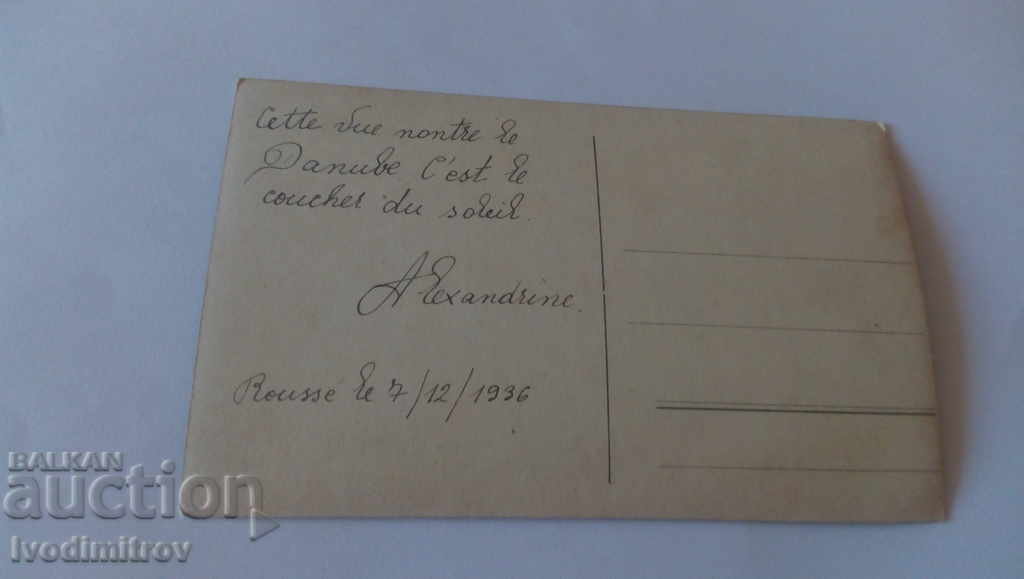 Cette vue nontre le
Danube C'est le
coucher du soleil.
Alexandrine.
Roussé le 7/12/1936
BALKAN
auction
Ivodimitrov